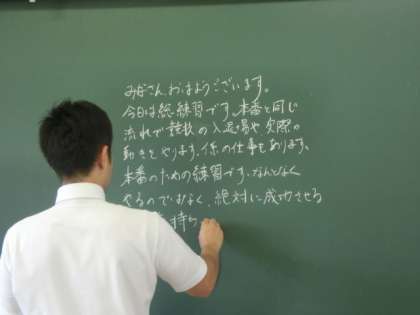 みなさん、おはようございます。
今日は総練習です。本番と同じ
流れで競技の入退場や実際の
動きをやります。係の仕事もあります。
本番のための練習です。なんとなく
やるのではなく、絶対に成功させる
持ち